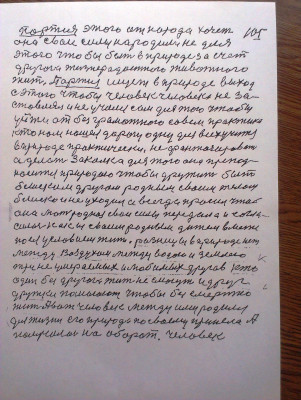 Партия этого от народа хочет 105
она свои силы народила не для
этого чтобы быть в природе за счет
другого жизнерадостного животного
жить, Партия ищет в природе выход
с этого чтобы человек человека не за-
ставлял и не учил сам для того чтобы
уйти от безграмотного совсем практика
кто нам нашел дорогу одну для всех
в природе практически, не фантазировать
а делать Закалка для того она препод-
природою чтобы дружить быть
близким другом родным своим телом
близко и не уходил и всегда просил чтоб
она свои силы передала и
как и своим родным детям в
условиях жить, разницы в природе нет
между воздухом между водою и землею
три не умираемых любимых друга кто
один без другого жить не смогут и друг
дружке помогают чтобы без смертно
жить А вот человек между ими родился
для жизни его природа по своему приняла А
на оборот. Человек